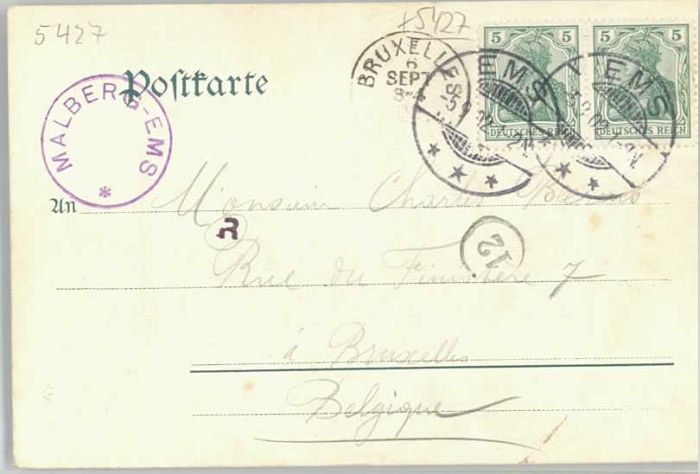 5427
+5427
Postkarte
MALBERG-EMS *
BRUXELLES
6
SEPT
5
DEUTSCHES REICH
5
DEUTSCHES REICH
EMS
-5.9.02
* * *
EMS
* *
An Monsieur Charles
R
12
Rue du Finistère 7
à Bruxelles
Belgique